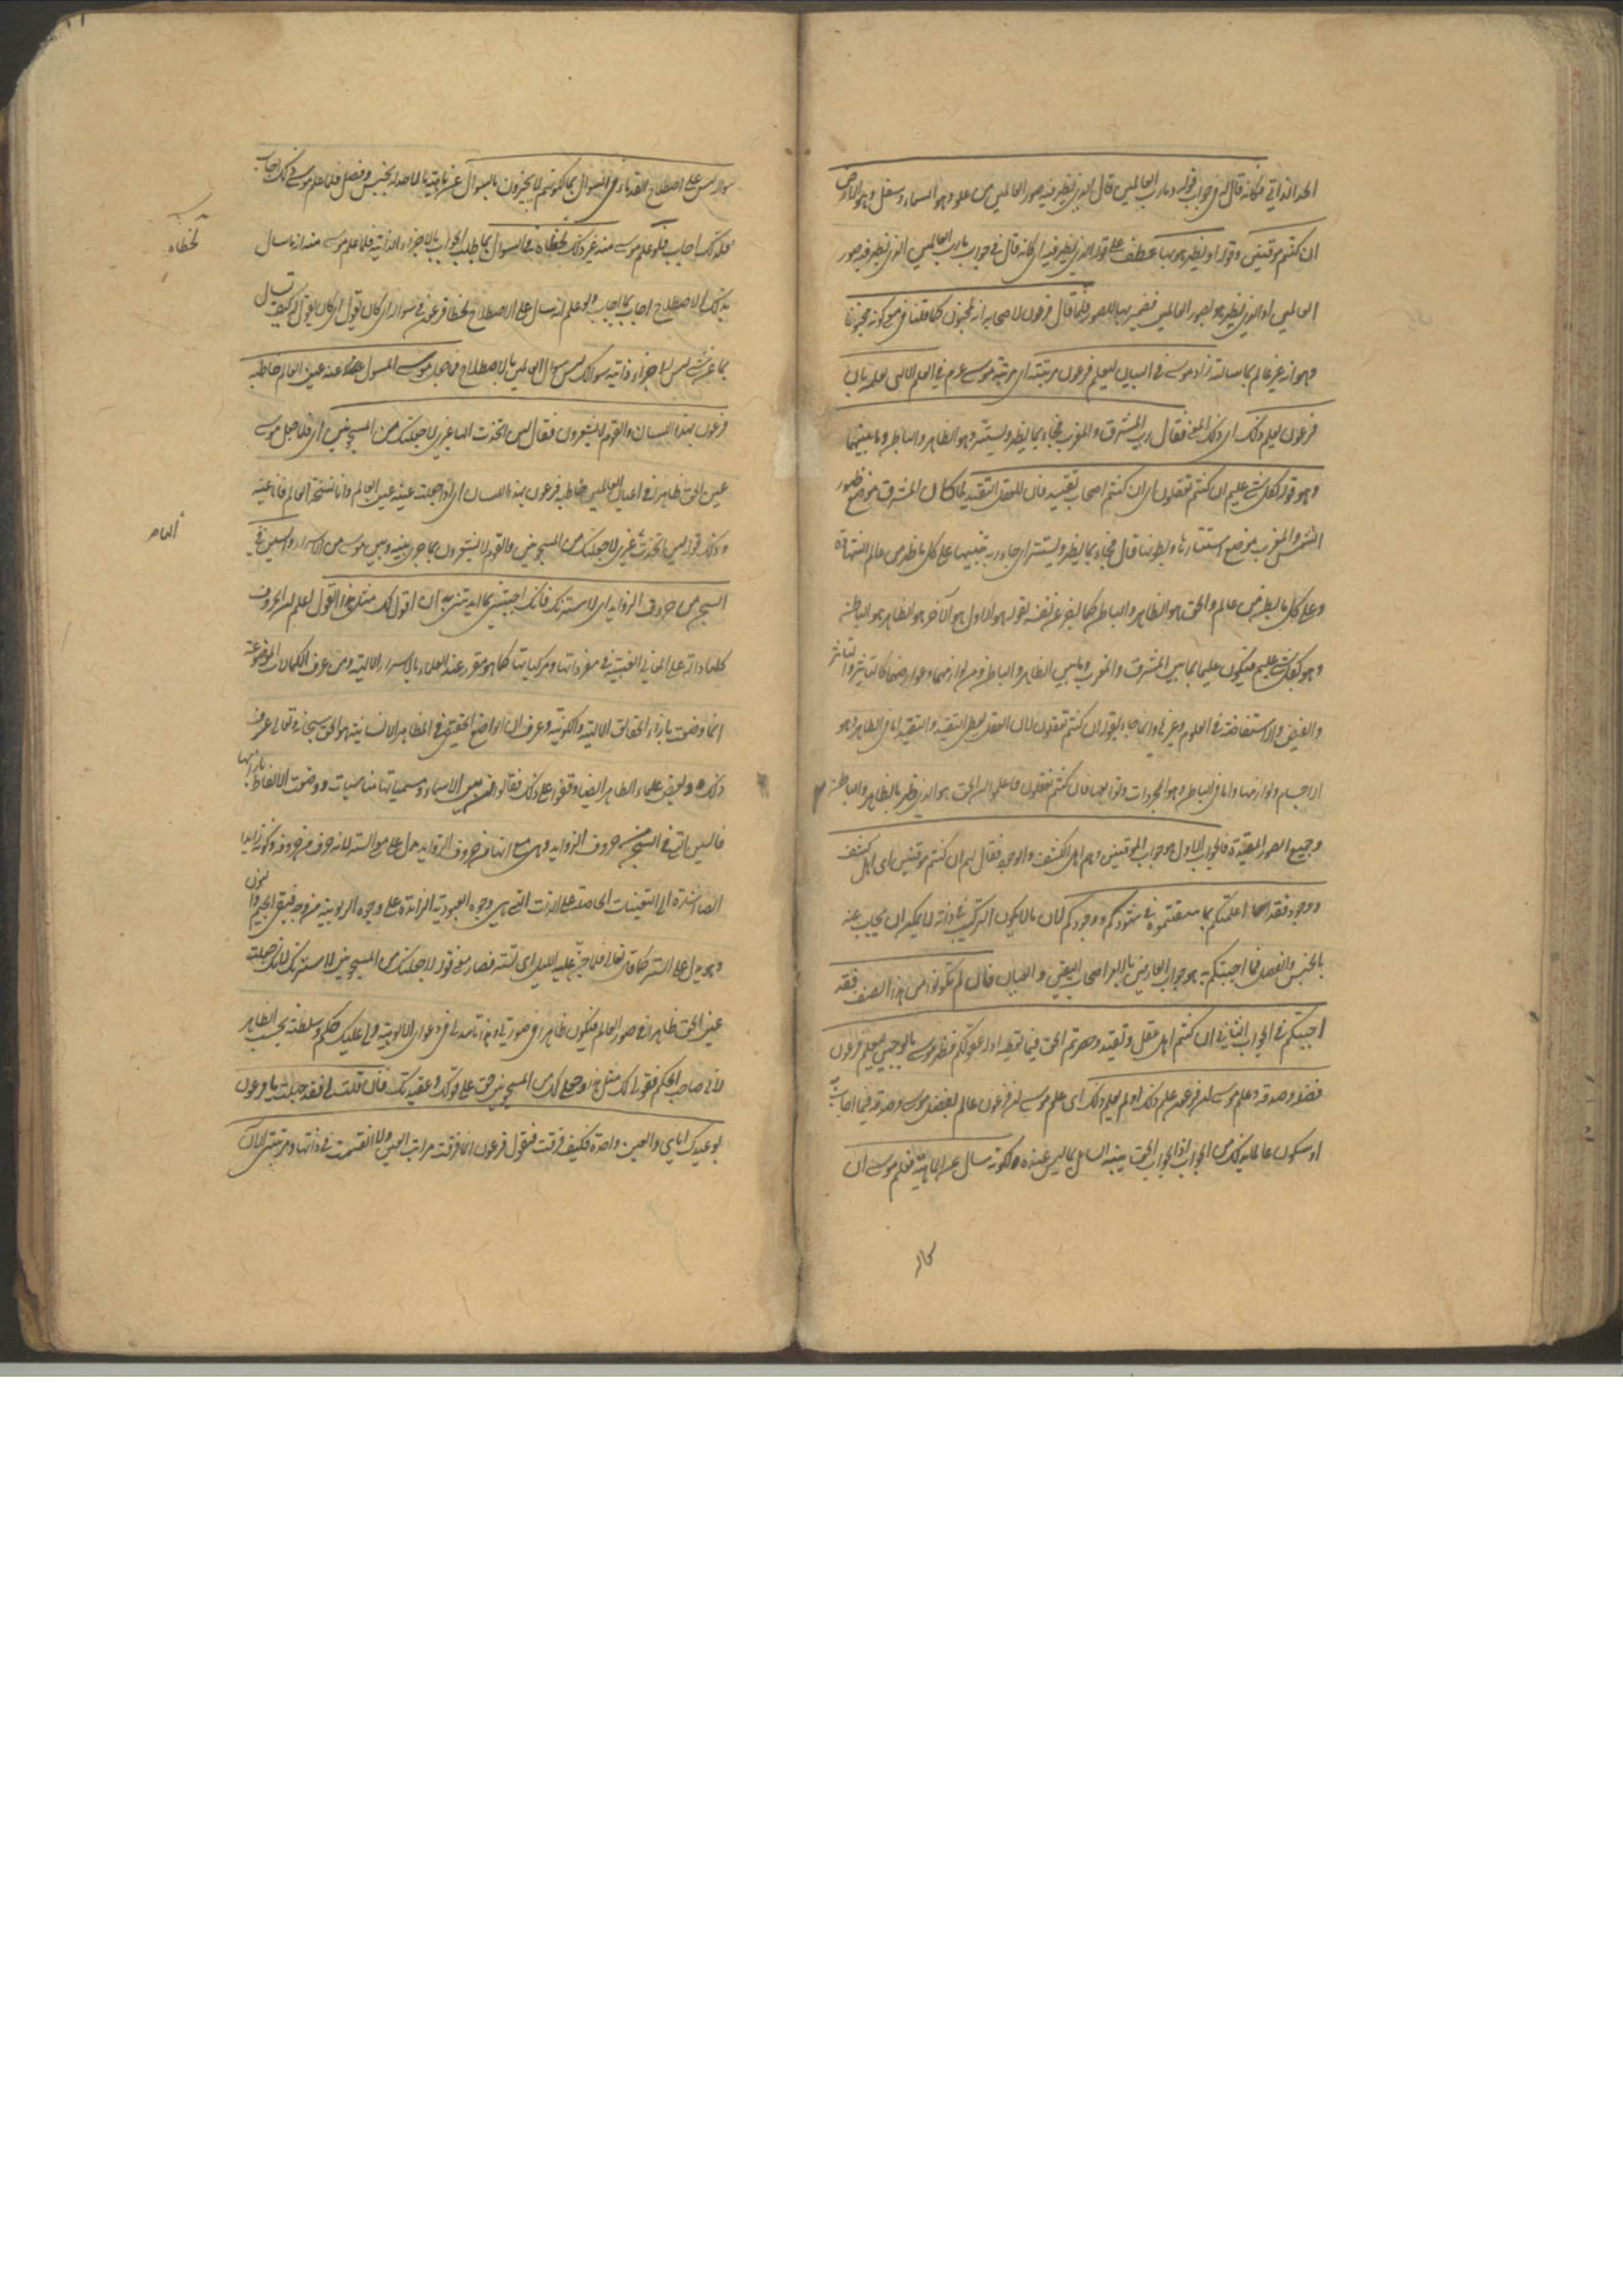 الحد الذاتي فكانه قال له في جواب قوله وما رب العالمين قال الذي يظهر فيه صور العالمين من علو وهو السماء وسفل وهو الارض
ان كنتم موقنين وقوله او يظهر هو بها عطف على قوله الذي يظهر فيه اي كانه قال في جواب ما رب العالمين الذي يظهر فيه صور
العالمين او الذي يظهر هو بصور العالمين فضمير بها للصور فلما قال فرعون لاصحابه انه لمجنون كما قلنا في معنى كونه مجنونا
وهو انه غير عالم بما سالته زاد موسى في البيان ليعلم فرعون مرتبته اي مرتبة موسى في العلم الالهي لعلمه بان
فرعون يعلم ذلك اي ذلك المعنى فقال رب المشرق والمغرب فجاء بما يظهر ويستتر وهو الظاهر والباطن وما بينهما
وهو قوله بكل شيء عليم ان كنتم تعقلون اي ان كنتم اصحاب تقييد فان للعقل التقييد لما كان المشرق موضع ظهور
الشمس والمغرب موضع استتارها وبطونها قال فجاء بما يظهر ويستتر اي جاء ربه تنبيها على كل ما ظهر من عالم الشهادة
وعلى كل ما بطن من عالم والحق هو الظاهر والباطن كما اخبر عن نفسه بقوله هو الاول هو الآخر هو الظاهر هو الباطن
وهو بكل شيء عليم فيكون عليما بما بين المشرق والمغرب وما بين الظاهر والباطن من لوازمهما وعوارضهما كالتاثير والتاثر
والفيض والاستفاضة في العلوم وغيرها وانما جاء بقوله ان كنتم تعقلون لان العقل يعطي التقييد والتقييد اما في الظاهر وهو
الاجسام ولوازمها واما في الباطن وهو المجردات وتوابعها فان كنتم تعقلون فاعلموا ان الحق هو الذي ظهر بالظاهر والباطن
وجميع الصور المقيدة فالجواب الاول هو جواب الموقنين وهم اهل الكشف والوجود فقال لهم ان كنتم موقنين اي اهل كشف
ووجود فقد اعلمتكم بما تيقنتموه في شهودكم ووجودكم لان ما لا يكون التركيب في ذاته لا يمكن ان يجيب عنه
بالجنس والفصل فما اجبتكم به هو جواب العارفين بالامر اصحاب اليقين والعيان فان لم تكونوا من هذا الصنف فقد
اجبتكم في الجواب الثاني ان كنتم اهل عقل وتقييد وحصرتم الحق فيما تعطيه ادلة عقولكم فظهر موسى بالوجهين ليعلم فرعون
فضله وصدقه وعلم موسى ان فرعون علم ذلك او لم يعلم ذلك اي علم موسى ان فرعون عالم بفضل موسى وصدقه فيما اجاب به
او سيكون عالما بذلك من الجواب اذ الجواب الحق ينبه السائل بما ليس عنده لكونه سال عن الماهية فعلم موسى ان
سواله ليس على اصطلاح القدماء في السوال بما لكونهم لا يجيزون بالسوال عن ماهية ما لا حد له بجنس وفصل فلما علم موسى ذلك اجاب
فلذلك اجاب فلو علم موسى منه غير ذلك لخطاه في السوال بما طلب الجواب بالاجزاء الذاتية فلما علم موسى منه انه ما سال
بذلك الاصطلاح اجاب بما اجاب ولو علم انه سال على الاصطلاح لخطا فرعون في سواله اي كان يقول له كيف تسال
بما عن شيء ليس له اجزاء ذاتية سوالك ليس سوال العالمين بالاصطلاح فلما جعل موسى المسول عنه عين العالم خاطبه
فرعون بهذا اللسان والقوم لا يشعرون فقال لئن اتخذت الها غيري لاجعلنك من المسجونين اي فلما جعل موسى
عين الحق ظاهرا في اعيان العالمين خاطبه فرعون بهذا اللسان اي اذا جعلته عينه عين العالم وانا نسخة العالم فانا عينه
وذلك قوله لئن اتخذت غيري لاجعلنك من المسجونين والقوم لا يشعرون بما جرى بينه وبين موسى من الاسرار والسين في
السجن من حروف الزوايد اي لاسترنك فانك اجبتني بما ايدتني به ان اقول لك مثل هذا القول اعلم ان الحروف
كلها دالة على المعاني الغيبية في مفرداتها ومركباتها كما هو مقرر عند العلماء بالاسرار الالهية ومن عرف ان الكلمات الموضوعة
انما وضعت بازاء الحقائق الالهية والكونية وعرف ان الواضع الحقيقي في المظاهر الانسانية هو الحق سبحانه وتعالى عرف
ذلك وبعض علماء الظاهر ايضا وقفوا على ذلك فقالوا ان بين الاسماء ومسمياتها مناسبات ووضعت الالفاظ بازائها
فالسين التي في السجن من حروف الزوايد وهي مع انها من حروف الزوايد تدل على معنى الستر لانه حرف من حروفه وكونه زايدا
ايضا اشارة الى التعينات الحاصلة على الذات التي هي وجوه العبودية الزائدة على وجوه الربوبية من وجه فيبقى الجيم والنون
وهو يدل على الستر كما قال تعالى فلما جن عليه الليل اي ستر فصار معنى قوله لاجعلنك من المسجونين لاسترنك لانك جعلت
عين الحق ظاهرا في صور العالم فيكون ظاهرا في صورتي وهذا تامل لي في دعوى الالوهية ولي عليك حكم وسلطنة بحسب الظاهر
لاني صاحب الحكم فقولي لك مثل هذا وجعلي لك من المسجونين حق على قولك وعقيدتك فان قلت لي فقد جهلت يا فرعون
بوعيدك اياي والعين واحدة فكيف فرقت فيقول فرعون انما فرقت مراتب العين ولا انقسمت في ذاتها ومرتبتي الآن
لخطاه